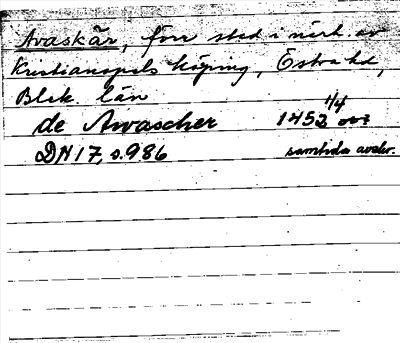 Avaskär, förr stad i närh av
Kristianopels köping, Östra hd,
Blek. län
de Awascher 1452 4/4 or
DN 17, s. 986 samtida avskr.